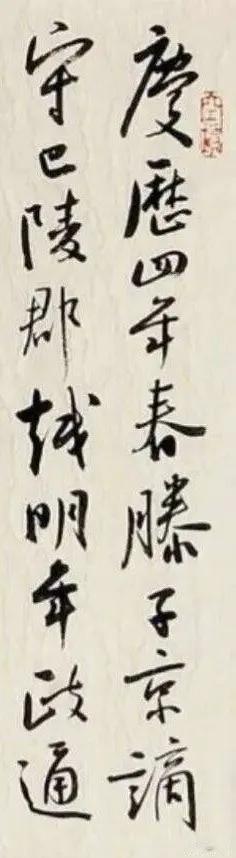 慶歷四年春滕子京謫
守巴陵郡越明年政通